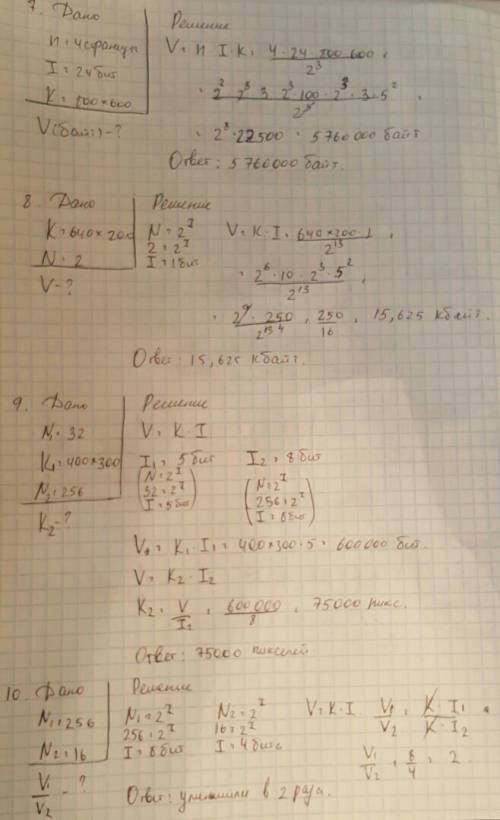 7. Дано
Решение
n = 4 страниц
I = 24 бит
K = 800×600
V(байт) - ?
V = n I · K = 4 · 24 · 800 · 600 / 2³ =
= 2² · 2³ · 3 · 2³ · 100 · 2³ · 3 · 5² / 2³ =
= 2⁸ · 22500 = 5760000 байт
Ответ: 5760000 байт.
8. Дано
Решение
K = 640×200
N = 2
V - ?
N = 2ᴵ
2 = 2ᴵ
I = 1 бит
V = K · I = 640×200·1 / 2¹³ =
= 2⁶ · 10 · 2³ · 5² / 2¹³ =
= 2⁹ · 250 / 2¹³ ⁴ = 250 / 16 = 15,625 Кбайт.
Ответ: 15,625 Кбайт.
9. Дано
Решение
N₁ = 32
K₁ = 400×300
N₂ = 256
K₂ - ?
V = K · I
I₁ = 5 бит
I₂ = 8 бит
(N = 2ᴵ
32 = 2ᴵ
I = 5 бит)
(N = 2ᴵ
256 = 2ᴵ
I = 8 бит)
V = K₁ I₁ = 400×300·5 = 600000 бит.
V = K₂ · I₂
K₂ = V / I₂ = 600000 / 8 = 75000 пикс.
Ответ: 75000 пикселей
10. Дано
Решение
N₁ = 256
N₂ = 16
V₁ / V₂ - ?
N₁ = 2ᴵ
256 = 2ᴵ
I = 8 бит
N₂ = 2ᴵ
16 = 2ᴵ
I = 4 бита
V = K · I
V₁ / V₂ = K · I₁ / K · I₂
V₁ / V₂ = 8 / 4 = 2
Ответ: уменьшили в 2 раза.